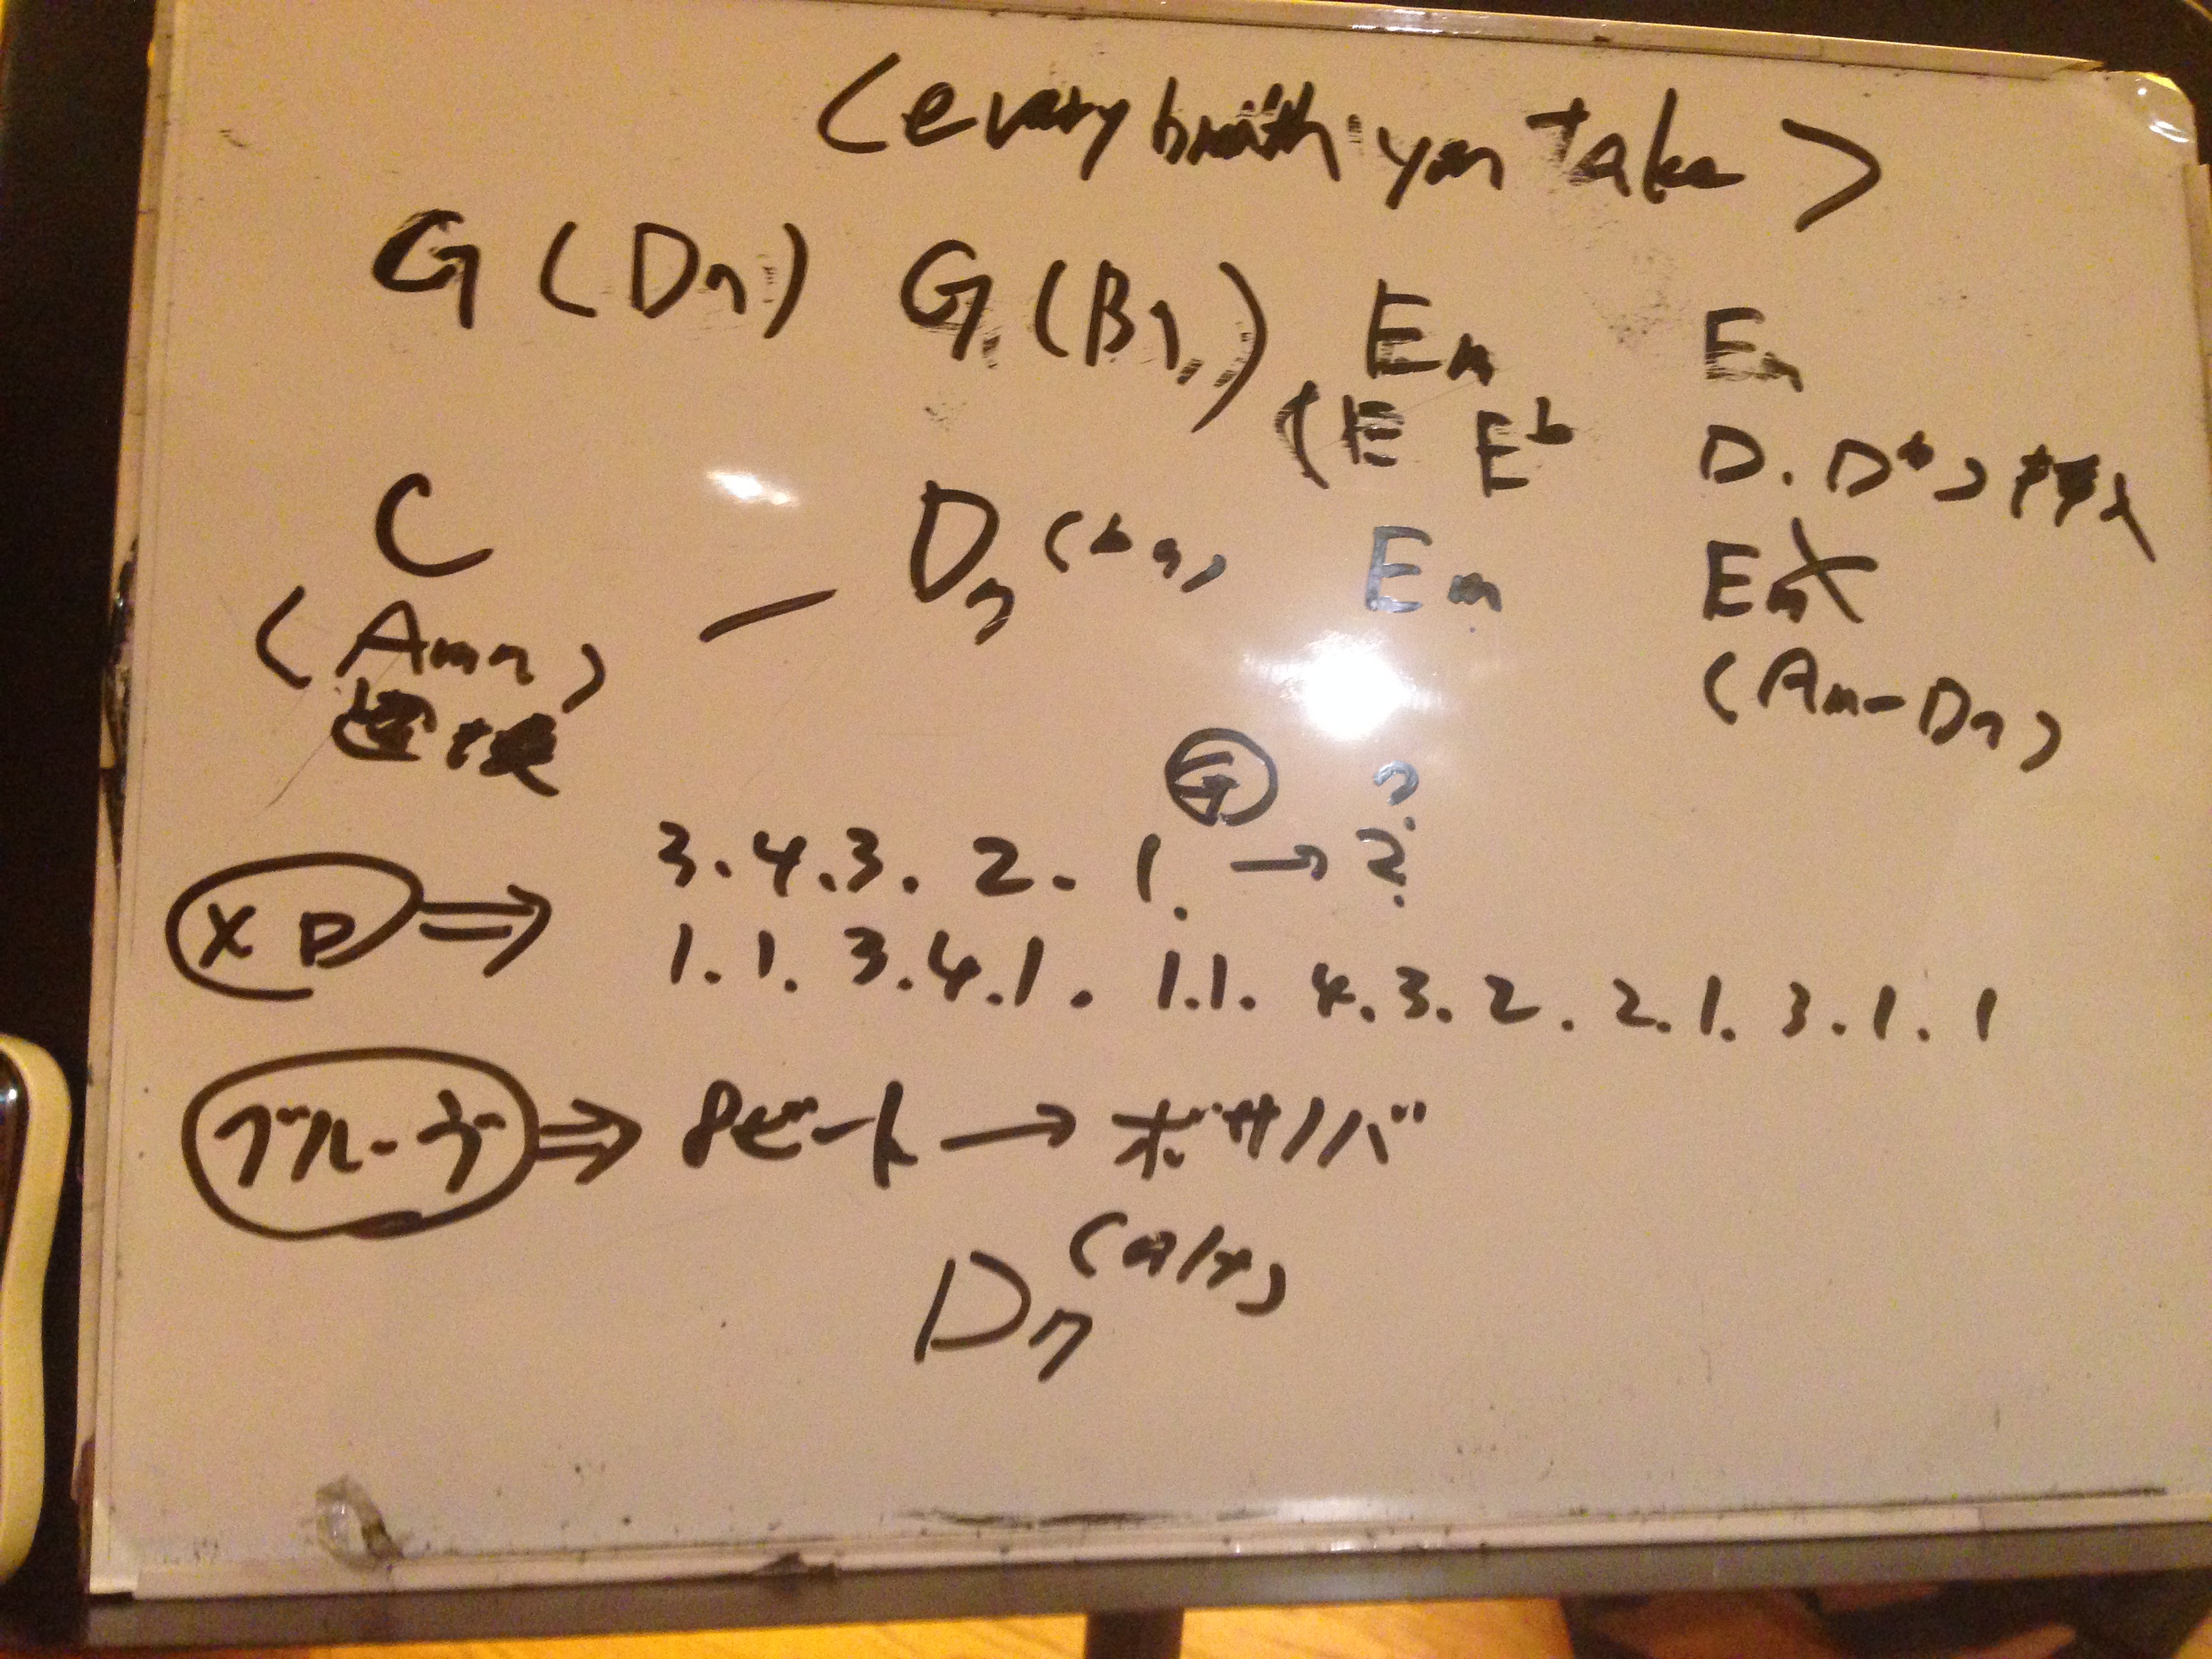 <every breath you take>
G (D7) G (B7) Em Em
(E E♭ D. D♭)
C – D7(♭9) Em Em
(Am7) (Am-D7)
置換
G ?
3.4.3. 2. 1. → 2
メロ ⇒ 1.1. 3.4.1. 1.1. 4.3.2. 2.1.3.1.1
グルーヴ ⇒ 8ビート → ボサノバ
D7(alt)